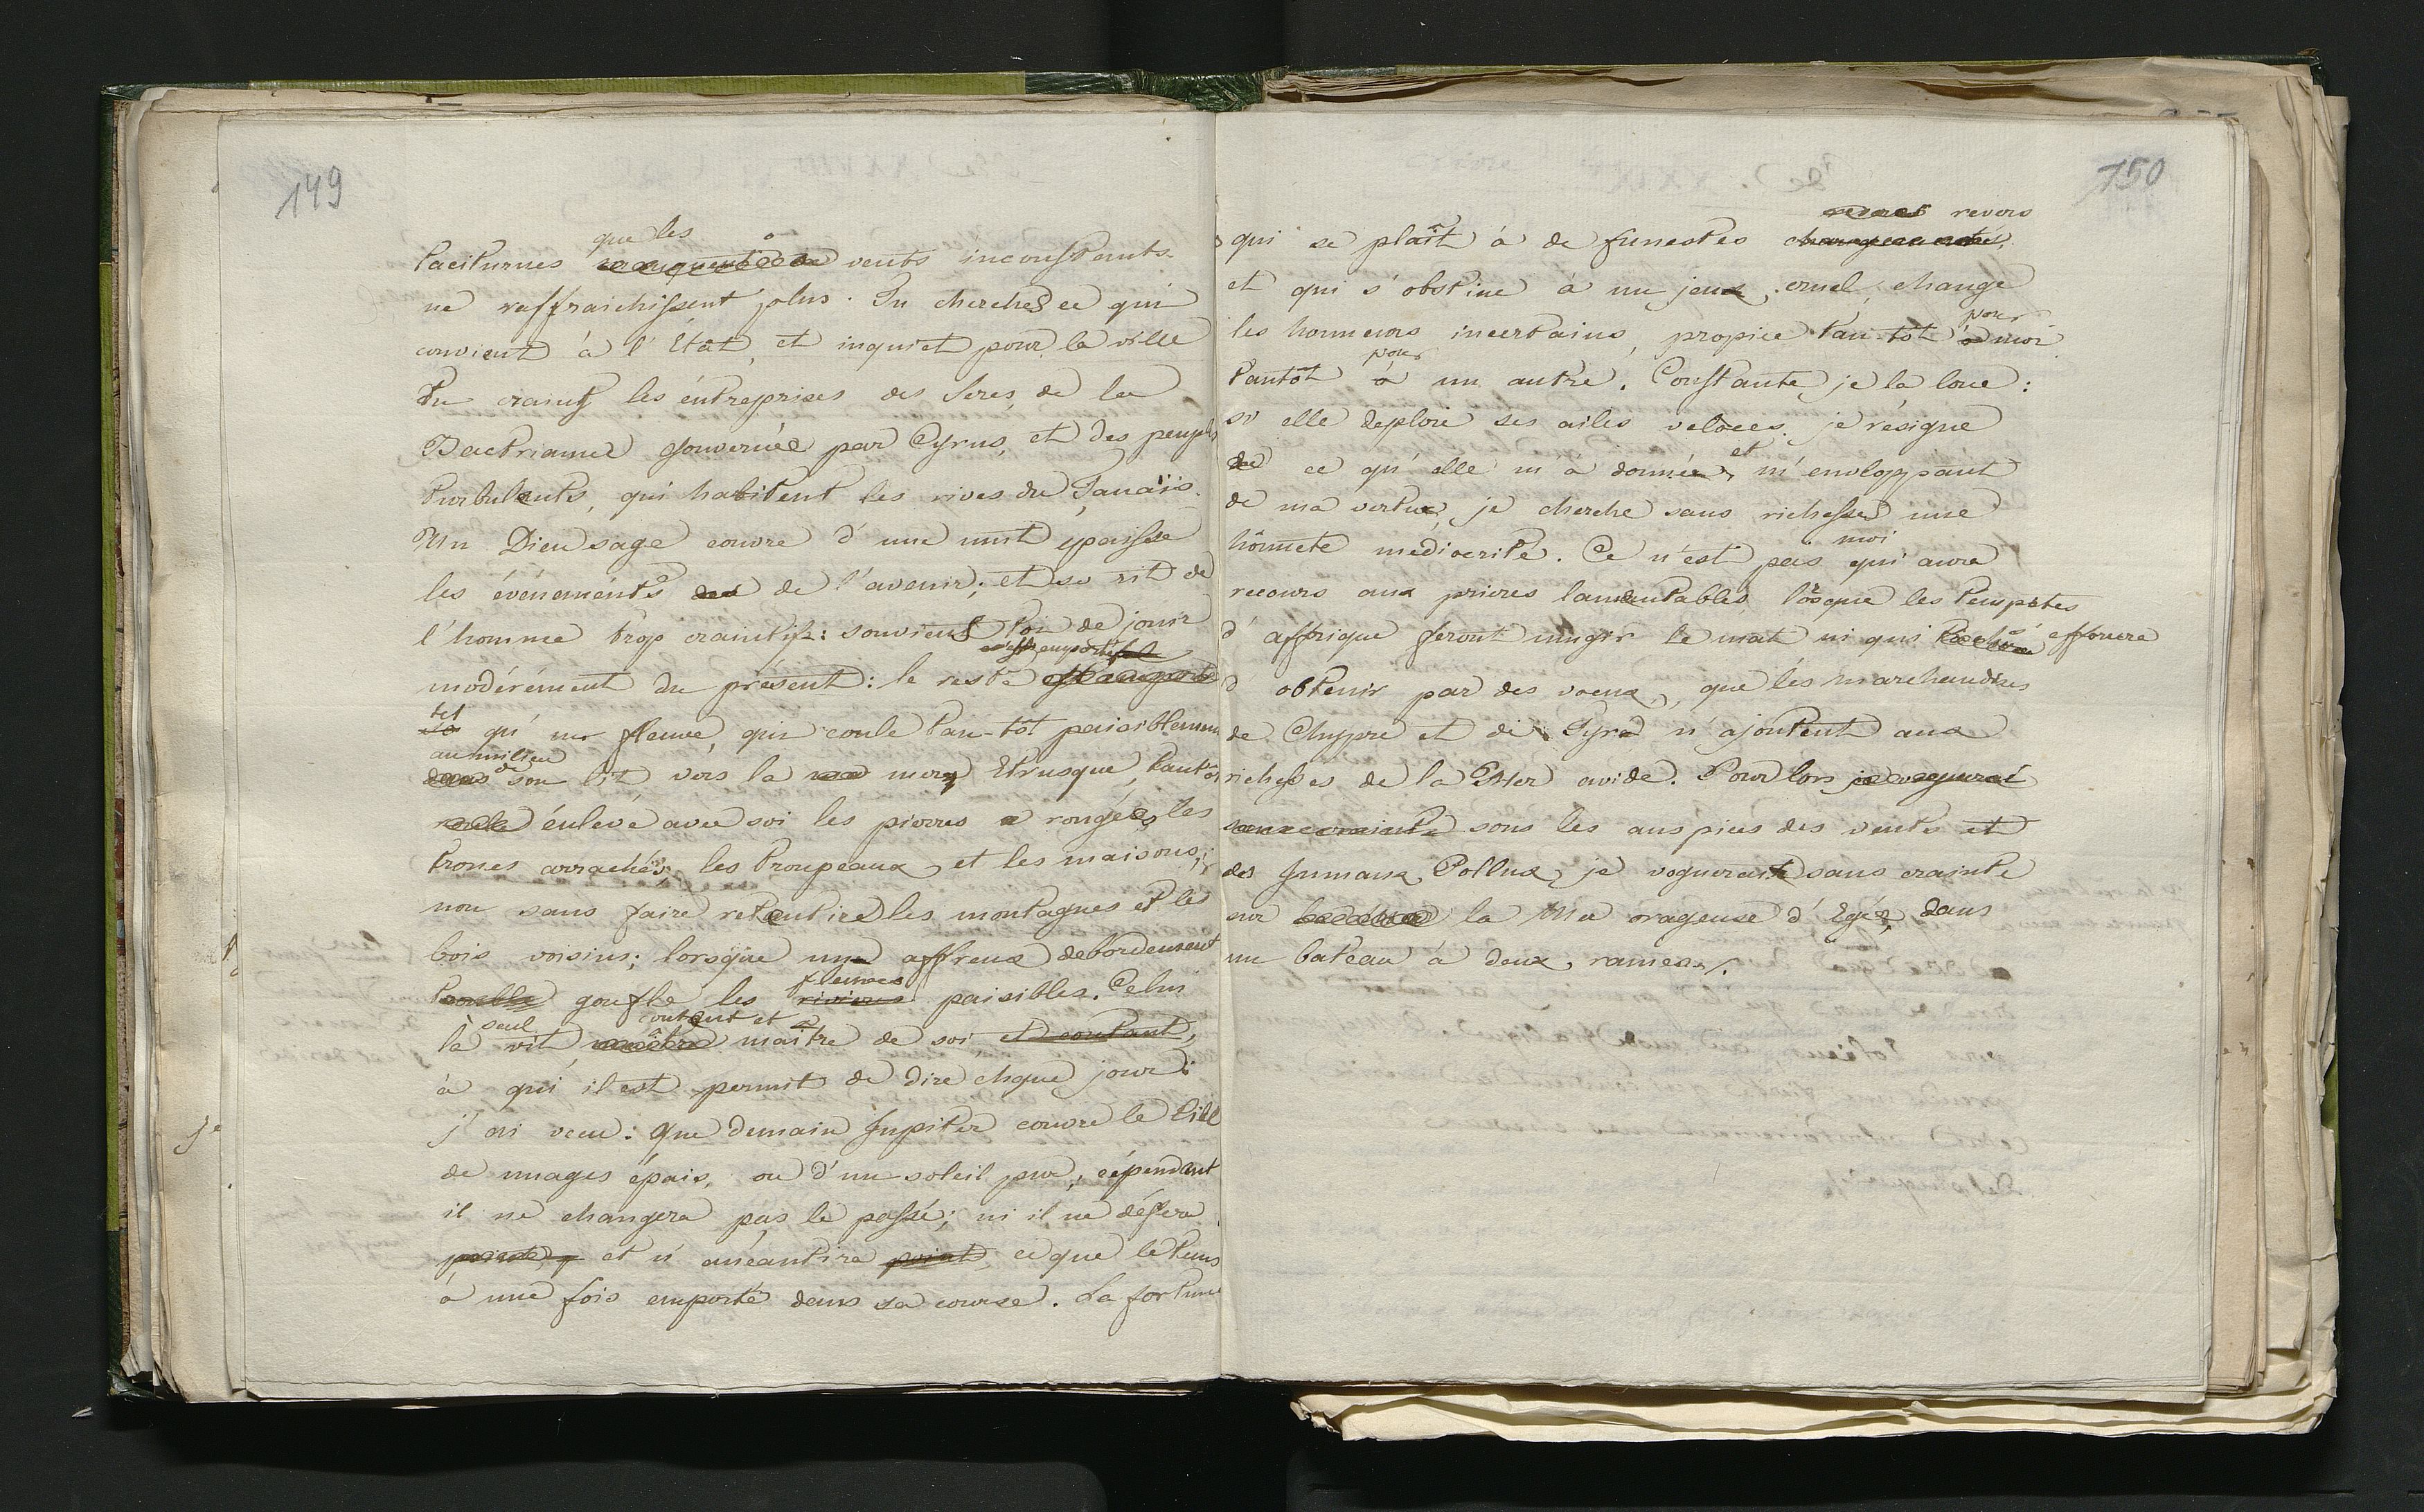 149
que les
taciturnes vents inconstants
ne raffraichissent plus. Tu cherches ce qui
convient à l'État, et inquiet pour la ville
tu crains les éntreprises des Seres, de la
Bactrianne gouvernée par Cyrus, et des peuples
turbulents, qui habitent les rives du Tanaïs.
Un Dieu sage couvre d'une nuit épaisse
les événéménts de l'avenir; et se rit de
l'homme trop craintif: souviens ton de jouir
modérément du présent: le reste
tel
qu'un fleuve, qui coule tan-tôt paisiblement
au milieu de
son lit vers la mer Etrusque, tantôt
énléve avec soi les pierres rongées, les
troncs arrachés, les troupeaux, et les maisons;
non sans faire retentire les montagnes et les
bois voisins; lorsque un affreux debordement
fleuves
gonfle les rivieres paisibles. Celui
seul content et
là vit maitre de soi et contant,
à qui il est permit de dire chque jour:
j'ai vecu: que demain Jupiter couvre le ciel
de nuages épais, ou d'un soleil pur, cépendant
il ne changera pas le passé; ni il ne défera
point, et n'anéantira point ce que le tems
à une fois emporté dans sa course. La fortune
150
revers
qui se plaît à de funestes changements,
et qui s'obstine à un jeux cruel, change
pour
les honneurs incertains, propice tan-tôt à moi
pour
tantôt à un autre. Constante, je la loue:
si elle deploie ses ailes velóces, je résigne
et
ce qu'elle m'à donnée, m'enveloppant
de ma vertue, je cherche sans richesses une
moi
hônnete mediocrité. Ce n'est pas qui aura
recours aux prieres lamentables lorsque les tempêtes
d'affrique feront mugir le mat ni qui efforcera
d'obtenir par des voeux, que les marchandises
de Chypre et de Tyre n'ajoutent aux
richesses de la Mer avide. Pour lors je voguerai
sans crainte sous les auspices des vents et
des Jumaux Pollux, je voguerait sans crainte
sur la Mer orageuse d'Egée, dans
un bateau à deux rames.
je